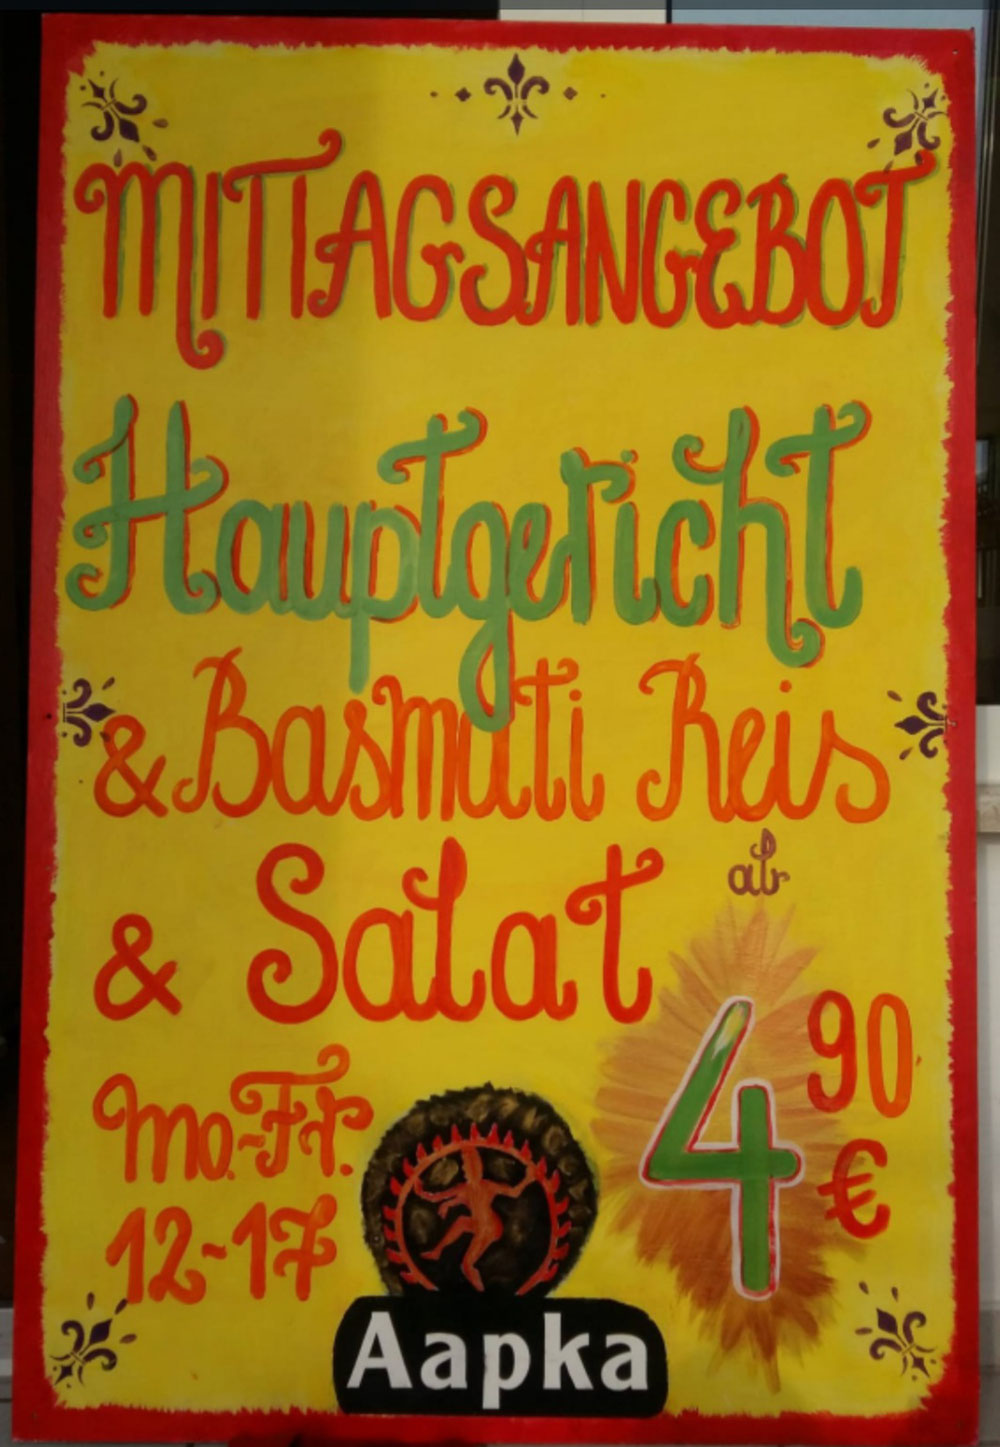 MITTAGSANGEBOT
Hauptgericht
& Basmati Reis
& Salat
ab
4 90 €
Mo.-Fr.
12-17
Aapka